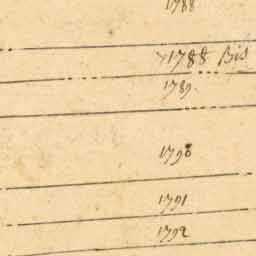 1788
1788 Bis
1789.
1790
1791
1792